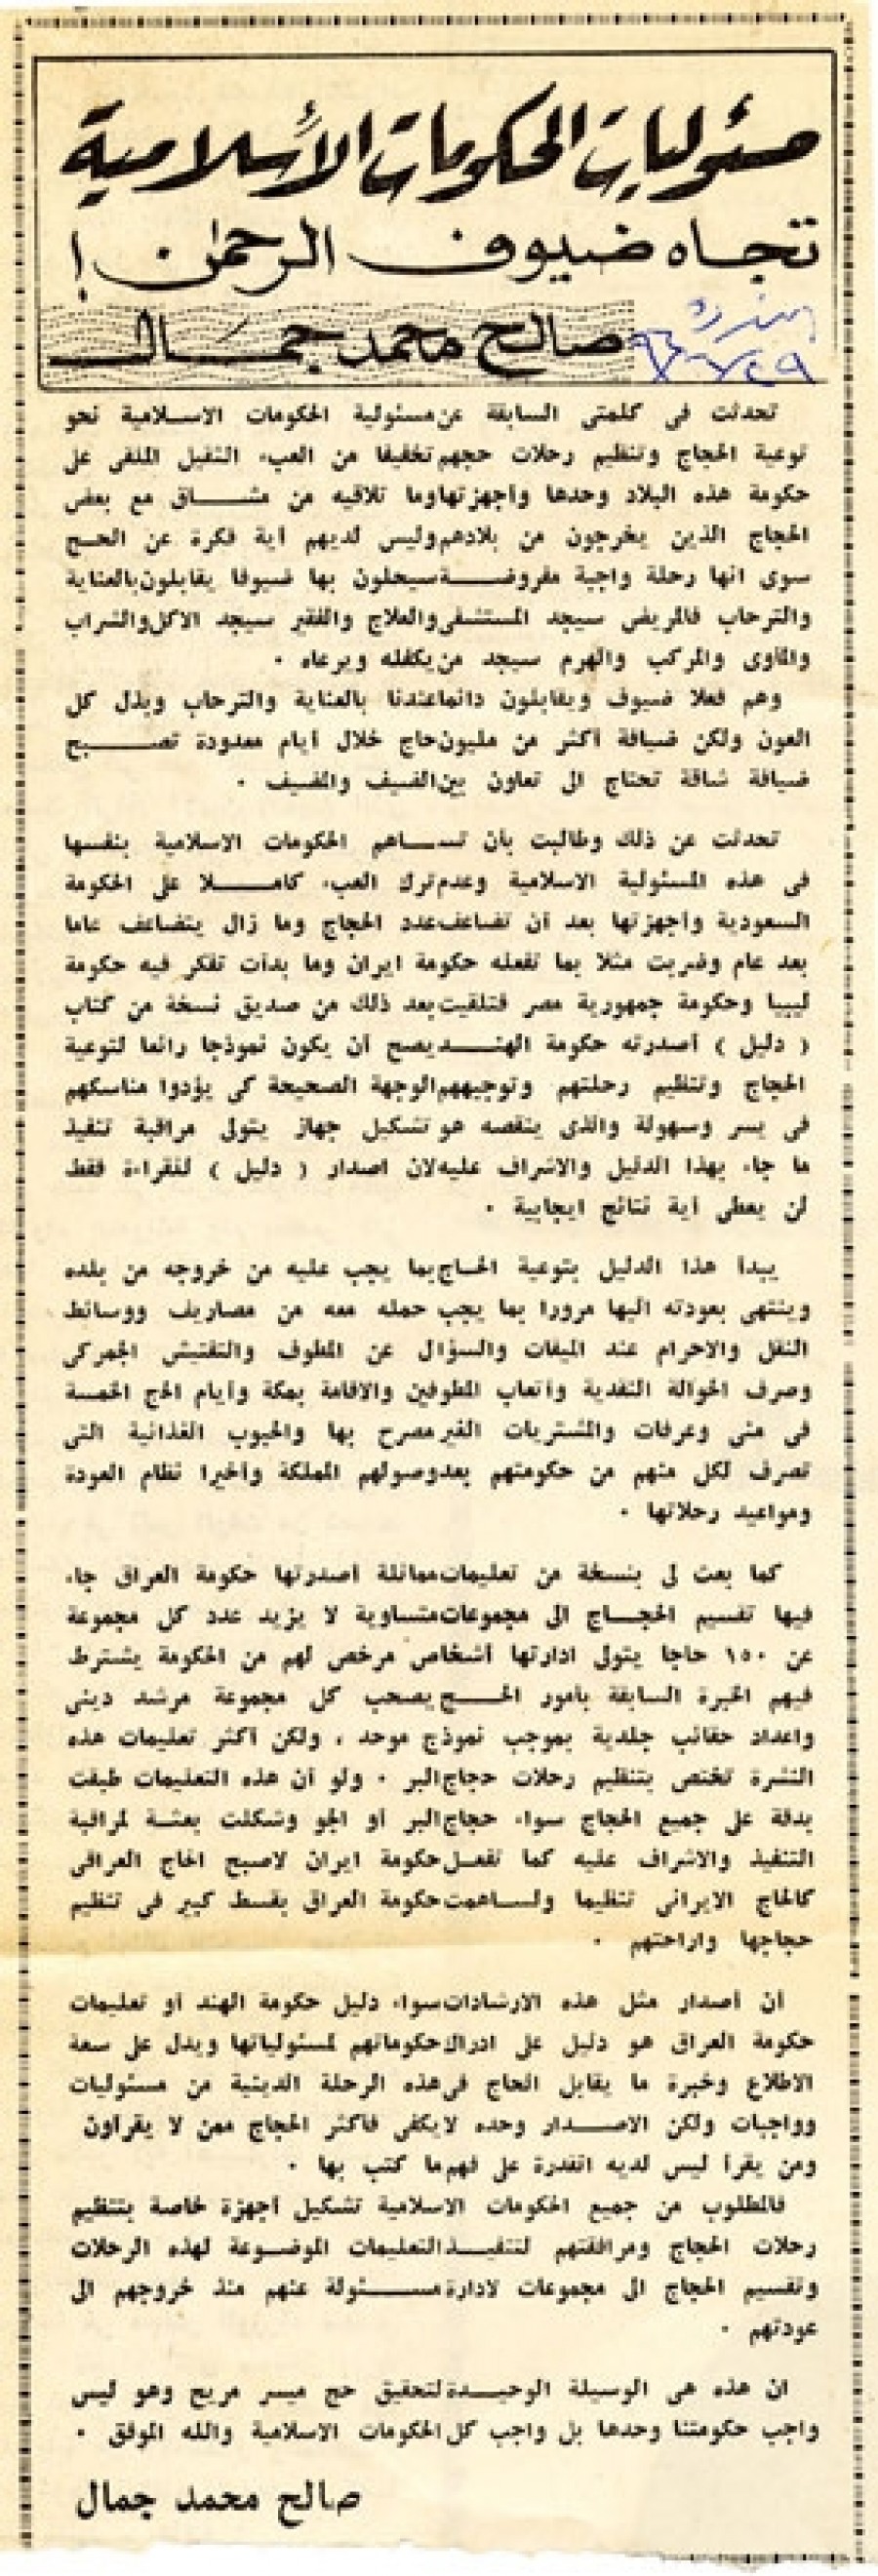 مسئوليات الحكومات الأسلامية
تجاه ضيوف الرحمن !
صالح محمد جمال
تحدثت فى كلمتى السابقة عن مسئولية الحكومات الاسلامية نحو
توعية الحجاج وتنظيم رحلات حجهم تخفيفا من العبء الثقيل الملقى على
حكومة هذه البلاد وحدها وأجهزتها وما تلاقيه من مشاق مع بعض
الحجاج الذين يخرجون من بلادهم وليس لديهم أية فكرة عن الحج
سوى انها رحلة واجبة مفروضة سيحلون بها ضيوفا يقابلون بالعناية
والترحاب فالمريض سيجد المستشفى والعلاج والفقير سيجد الاكل والشراب
والمأوى والمركب والهرم سيجد من يكفله ويرعاه ٠
وهم فعلا ضيوف ويقابلون دائما عندنا بالعناية والترحاب وبذل كل
العون ولكن ضيافة أكثر من مليون حاج خلال أيام معدودة تصبح
ضيافة شاقة تحتاج الى تعاون بين الضيف والمضيف ٠
تحدثت عن ذلك وطالبت بأن تساهم الحكومات الاسلامية بنفسها
فى هذه المسئولية الاسلامية وعدم ترك العبء كاملا على الحكومة
السعودية وأجهزتها بعد أن تضاعف عدد الحجاج وما زال يتضاعف عاما
بعد عام وضربت مثلا بما تفعله حكومة ايران وما بدأت تفكر فيه حكومة
ليبيا وحكومة جمهورية مصر فتلقيت بعد ذلك من صديق نسخة من كتاب
( دليل ) أصدرته حكومة الهند يصح أن يكون نموذجا رائعا لتوعية
الحجاج وتنظيم رحلتهم وتوجيههم الوجهة الصحيحة كى يؤدوا مناسكهم
فى يسر وسهولة والذى ينقصه هو تشكيل جهاز يتولى مراقبة تنفيذ
ما جاء بهذا الدليل والاشراف عليه لان اصدار ( دليل ) للقراءة فقط
لن يعطى أية نتائج ايجابية ٠
يبدأ هذا الدليل بتوعية الحاج بما يجب عليه من خروجه من بلده
وينتهى بعودته اليها مرورا بما يجب حمله معه من مصاريف ووسائط
النقل والاحرام عند الميقات والسؤال عن المطوف والتفتيش الجمركى
وصرف الحوالة النقدية وأتعاب المطوفين والاقامة بمكة وأيام الحج الخمسة
فى منى وعرفات والمشتريات الغير مصرح بها والحبوب الغذائية التى
تصرف لكل منهم من حكومتهم بعد وصولهم المملكة وأخيرا نظام العودة
ومواعيد رحلاتها ٠
كما بعث لى بنسخة من تعليمات مماثلة أصدرتها حكومة العراق جاء
فيها تقسيم الحجاج الى مجموعات متساوية لا يزيد عدد كل مجموعة
عن ١٥٠ حاجا يتولى ادارتها أشخاص مرخص لهم من الحكومة يشترط
فيهم الخبرة السابقة بأمور الحج يصحب كل مجموعة مرشد دينى
واعداد حقائب جلدية بموجب نموذج موحد ، ولكن أكثر تعليمات هذه
النشرة تختص بتنظيم رحلات حجاج البر ٠ ولو أن هذه التعليمات طبقت
بدقة على جميع الحجاج سواء حجاج البر أو الجو وشكلت بعثة لمراقبة
التنفيذ والاشراف عليه كما تفعل حكومة ايران لاصبح الحاج العراقى
كالحاج الايرانى تنظيما ولساهمت حكومة العراق بقسط كبير فى تنظيم
حجاجها واراحتهم ٠
أن أصدار مثل هذه الارشادات سواء دليل حكومة الهند أو تعليمات
حكومة العراق هو دليل على ادراك حكوماتهم لمسئولياتها ويدل على سعة
الاطلاع وخبرة ما يقابل الحاج فى هذه الرحلة الدينية من مسئوليات
وواجبات ولكن الاصدار وحده لا يكفى فأكثر الحجاج ممن لا يقرأون
ومن يقرأ ليس لديه القدرة على فهم ما كتب بها ٠
فالمطلوب من جميع الحكومات الاسلامية تشكيل أجهزة خاصة بتنظيم
رحلات الحجاج ومرافقتهم لتنفيذ التعليمات الموضوعة لهذه الرحلات
وتقسيم الحجاج الى مجموعات لادارة مسئولة عنهم منذ خروجهم الى
عودتهم ٠
ان هذه هى الوسيلة الوحيدة لتحقيق حج ميسر مريح وهو ليس
واجب حكومتنا وحدها بل واجب كل الحكومات الاسلامية والله الموفق ٠
صالح محمد جمال